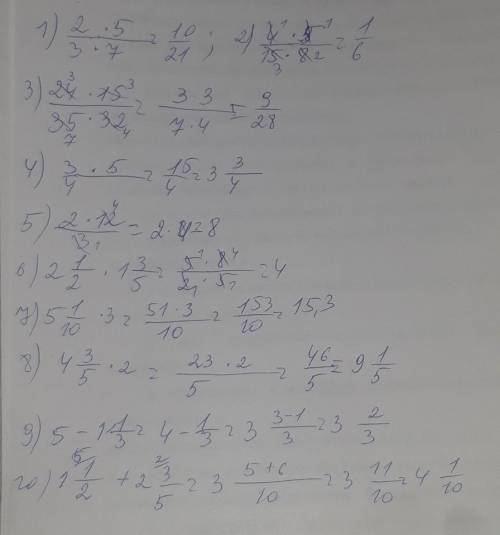 1) 2 · 5 / 3 · 7 = 10/21 ; 2) 4¹ · 5¹ / 15₃ · 8₂ = 1/6
3) 24³ · 15³ / 35₇ · 32₄ = 3 3 / 7 · 4 = 9/28
4) 3/4 · 5 = 15/4 = 3 3/4
5) 2 · 12⁴ / 3₁ = 2 · 4 = 8
6) 2 1/2 · 1 3/5 = 5¹ · 8⁴ / 2₁ · 5₁ = 4
7) 5 1/10 · 3 = 51 · 3 / 10 = 153/10 = 15,3
8) 4 3/5 · 2 = 23 · 2 / 5 = 46/5 = 9 1/5
9) 5 - 1 1/3 = 4 - 1/3 = 3 3-1/3 = 3 2/3
10) 1 1⁵/2 + 2 3²/5 = 3 5+6/10 = 3 11/10 = 4 1/10